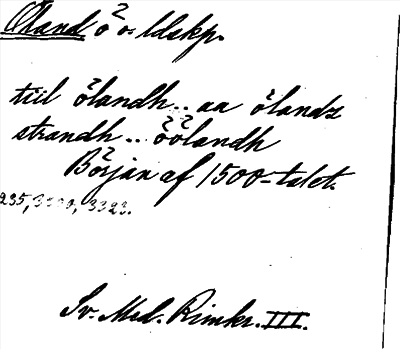 Öland ö o. ldskp.
tiil ölandh .. aa ölandz
strandh .. öölandh
Början af 1500-talet.
235, 3320, 3323.
Sv. Med. Rimkr. III.